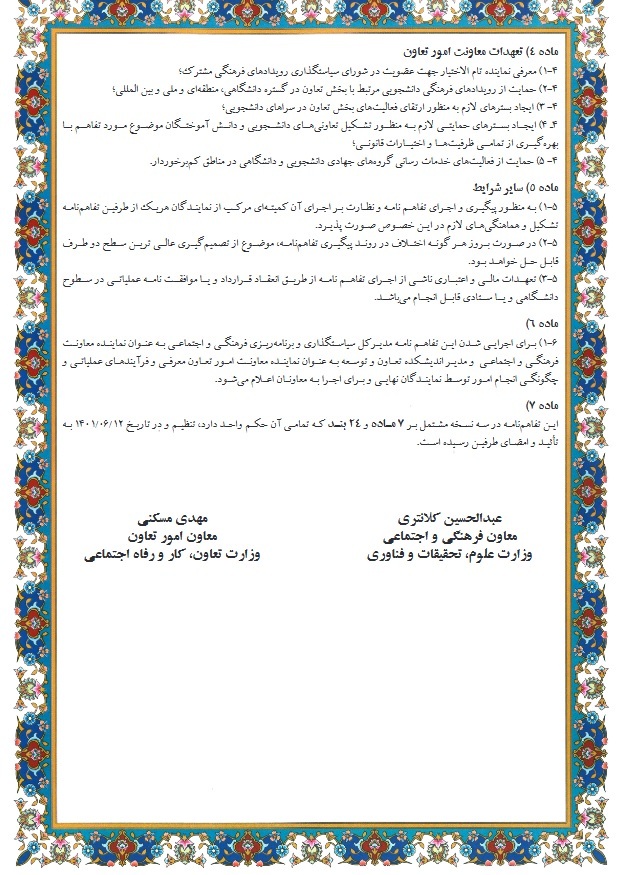 ماده ٤) تعهدات معاونت امور تعاون
۴-۱) معرفی نماینده تام الاختیار جهت عضویت در شورای سیاستگذاری رویدادهای فرهنگی مشترک؛
۴-۲) حمایت از رویدادهای فرهنگی دانشجویی مرتبط با بخش تعاون در گستره دانشگاهی، منطقه‌ای و ملی و بین المللی؛
۴- ۳) ایجاد بسترهای لازم به منظور ارتقای فعالیت‌های بخش تعاون در سراهای دانشجویی؛
۴ـ ۴) ایجاد بسترهای حمایتی لازم به منظور تشکیل تعاونی‌های دانشجویی و دانش آموختگان موضوع مورد تفاهم با
بهره‌گیری از تمامی ظرفیت‌ها و اختیارات قانونی؛
۴- ۵) حمایت از فعالیت‌های خدمات رسانی گروه‌های جهادی دانشجویی و دانشگاهی در مناطق کم‌برخوردار.
ماده ۵) سایر شرایط
۵-۱) به منظور پیگیری و اجرای تفاهم نامه و نظارت بر اجرای آن کمیته‌ای مرکب از نمایندگان هریک از طرفین تفاهم‌نامه
تشکیل و هماهنگی‌های لازم در این خصوص صورت پذیرد.
۵-۲) در صورت بروز هر گونه اختلاف در روند پیگیری تفاهم‌نامه، موضوع از تصمیم‌گیری عالی ترین سطح دو طرف
قابل حل خواهد بود.
۵-۳) تعهدات مالی و اعتباری ناشی از اجرای تفاهم نامه از طریق انعقاد قرارداد و یا موافقت نامه عملیاتی در سطوح
دانشگاهی و یا ستادی قابل انجام می‌باشد.
ماده ٦)
۶-۱) برای اجرایی شدن این تفاهم نامه مدیرکل سیاستگذاری و برنامه‌ریزی فرهنگی و اجتماعی به عنوان نماینده معاونت
فرهنگی و اجتماعی و مدیر اندیشکده تعاون و توسعه به عنوان نماینده معاونت امور تعاون معرفی و فرآیندهای عملیاتی و
چگونگی انجام امور توسط نمایندگان نهایی و برای اجرا به معاونان اعلام می‌شود.
ماده ۷)
این تفاهم‌نامه در سه نسخه مشتمل بر ۷ ماده و ۲٤ بند که تمامی آن حکم واحد دارد، تنظیم و در تاریخ ۱۴۰۱/۰۶/۱۲ به
تأئید و امضای طرفین رسیده است.
عبدالحسین کلانتری
معاون فرهنگی و اجتماعی
وزارت علوم، تحقیقات و فناوری
مهدی مسکنی
معاون امور تعاون
وزارت تعاون، کار و رفاه اجتماعی